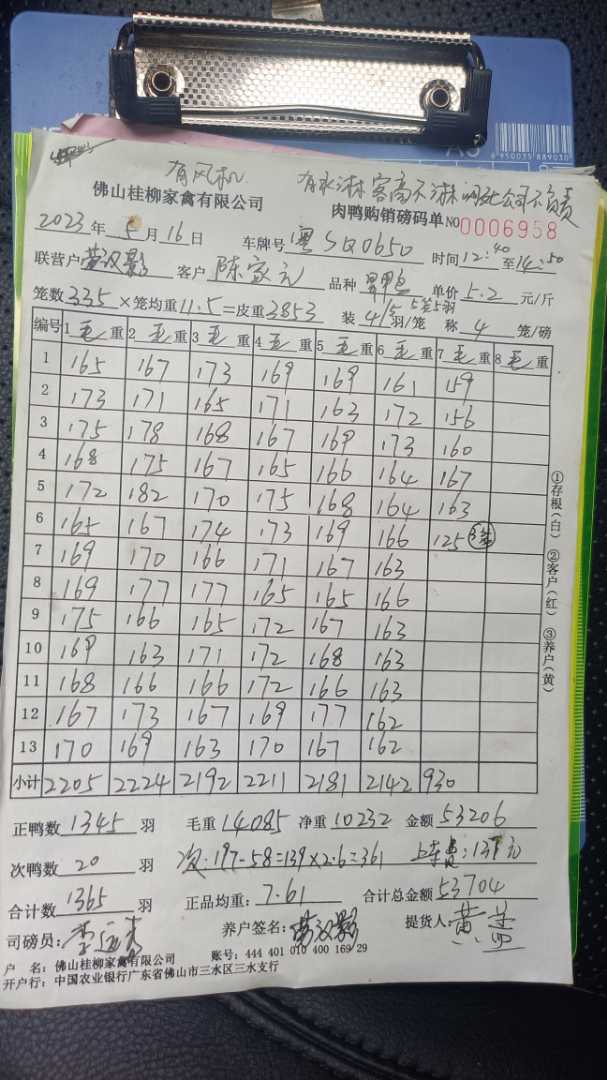 有风机
有水淋 客高不淋 死公司不负责
佛山桂柳家禽有限公司
肉鸭购销磅码单 NO 0006958
2023年5月16日 车牌号 粤SQ0650 时间 12:40 至 14:50
联营户 客户 陈家元 品种 单价 5.2 元/斤
笼数 335 ×笼均重 11.5 =皮重 3853 装 4 羽/笼 称 4 笼/磅
编号 1 毛 重 2 毛 重 3 毛 重 4 毛 重 5 毛 重 6 毛 重 7 毛 重 8 毛 重
1 165 167 173 169 169 161 159
2 173 171 165 171 163 172 156
3 175 178 168 167 169 173 160
4 168 175 167 165 166 164 167
5 172 182 170 175 168 164 163
6 165 167 174 173 169 166 125 3笼
7 169 170 166 171 167 163
8 169 177 177 165 165 166
9 175 166 165 172 167 163
10 169 163 171 172 168 163
11 168 166 166 172 166 163
12 167 173 167 169 177 162
13 170 169 163 170 167 162
小计 2205 2224 2192 2211 2181 2142 930
①存根(白) ②客户(红) ③养户(黄)
正鸭数 1345 羽 毛重 14085 净重 10232 金额 53206
次鸭数 20 羽 次:197-58=139×2.6=361 上车费:137元
合计数 1365 羽 正品均重: 7.61 合计总金额 53704
司磅员: 养户签名: 提货人: 黄
户 名: 佛山桂柳家禽有限公司 账号: 444 401 010 400 169 29
开户行: 中国农业银行广东省佛山市三水区三水支行